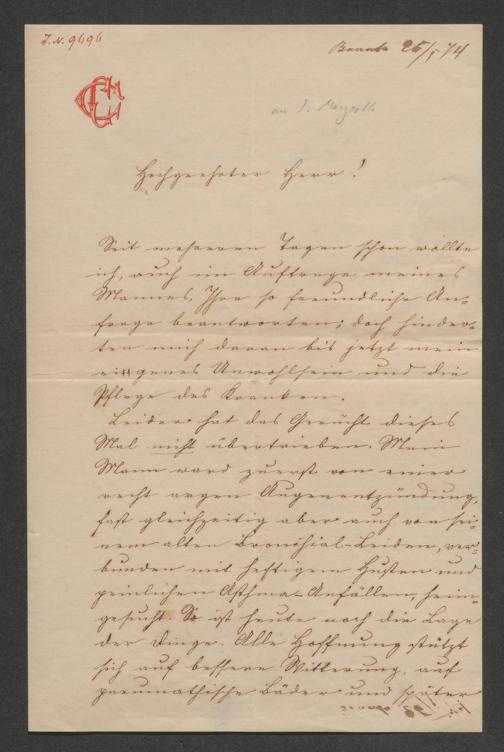 J.N. 9696
25/5 74
an
Hochgeehrter Herr!
Seit mehreren Tagen schon wollte
ich, auch im Auftrage meines
Mannes, Ihre so freundliche An-
frage beantworten; doch hinder-
ten mich daran bis jetzt mein
eigenes Unwohlsein und die
Pflege des Kranken.
Leider hat das Gerücht dieses
Mal nicht übertrieben. Mein
Mann ward zuerst von einer
recht argen Augenentzündung,
fast gleichzeitig aber auch von sei-
nem alten Bronchial-Leiden, ver-
bunden mit heftigem Husten und
peinlichen Asthma-Anfällen, heim-
gesucht. So ist heute noch die Lage
der Dinge. Alle Hoffnung stützt
sich auf bessere Witterung, auf
pneumathische Bäder und später